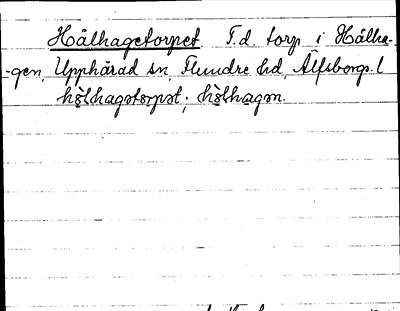 Hålhagetorpet T.d. torp i Hålha-
-gen, Upphärad sn, Flundre hd, Älfsborgs l
hòlhagətòrpət; hòlhagən.